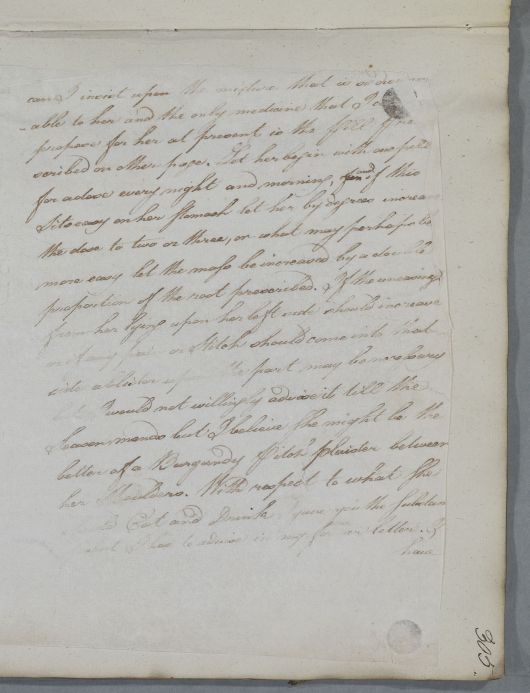 can I insist upon the mixture that is so
-able to her and the only medicine that I
propose for her at present is the Pill
scribed on other page. Let her begin with one pill
for a dose every night and morning, and if this
Sits easy on her stomach let her by degrees increase
the dose to two or three, or what may perhaps be
more easy let the mass be increased by a double
proportion of the root prescribed. If the uneasiness
from her lying upon her left side should increase
or if any pain or stitch should come into that
side a blister upon the part may be necessary
I would not willingly advise it till the
Season mends but I believe she might be the
better of a Burgundy Pitch plaister between
her Shoulders. With respect to what she
Eat and Drink I gave you the substance
I have to advise in my former letter. I
have
305